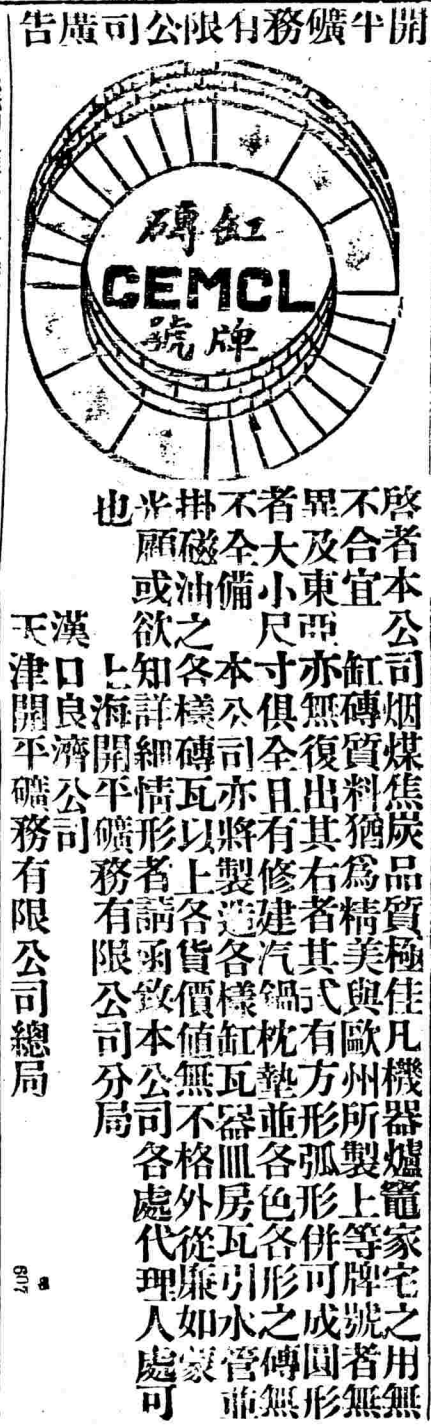 開平礦務有限公司廣告
缸磚
CEMCL
牌號
啓者本公司烟煤焦炭品質極佳凡機器爐竈家宅之用無
不合宜　缸磚質料猶爲精美與歐州所製上等牌號者無
異及東亞亦無復出其右者其式有方形弧形併可成圓形
者大小尺寸俱全且有修建汽鍋枕墊並各色各形之磚無
不全備　本公司亦將製造各樣缸瓦器皿房瓦引水管並
掛磁油之各樣磚瓦以上各貨價値無不格外從廉如蒙
光顧或欲知詳細情形者請函致本公司各處代理人處可
也
上海開平礦務有限公司分局
漢口良濟公司
天津開平礦務有限公司總局
607